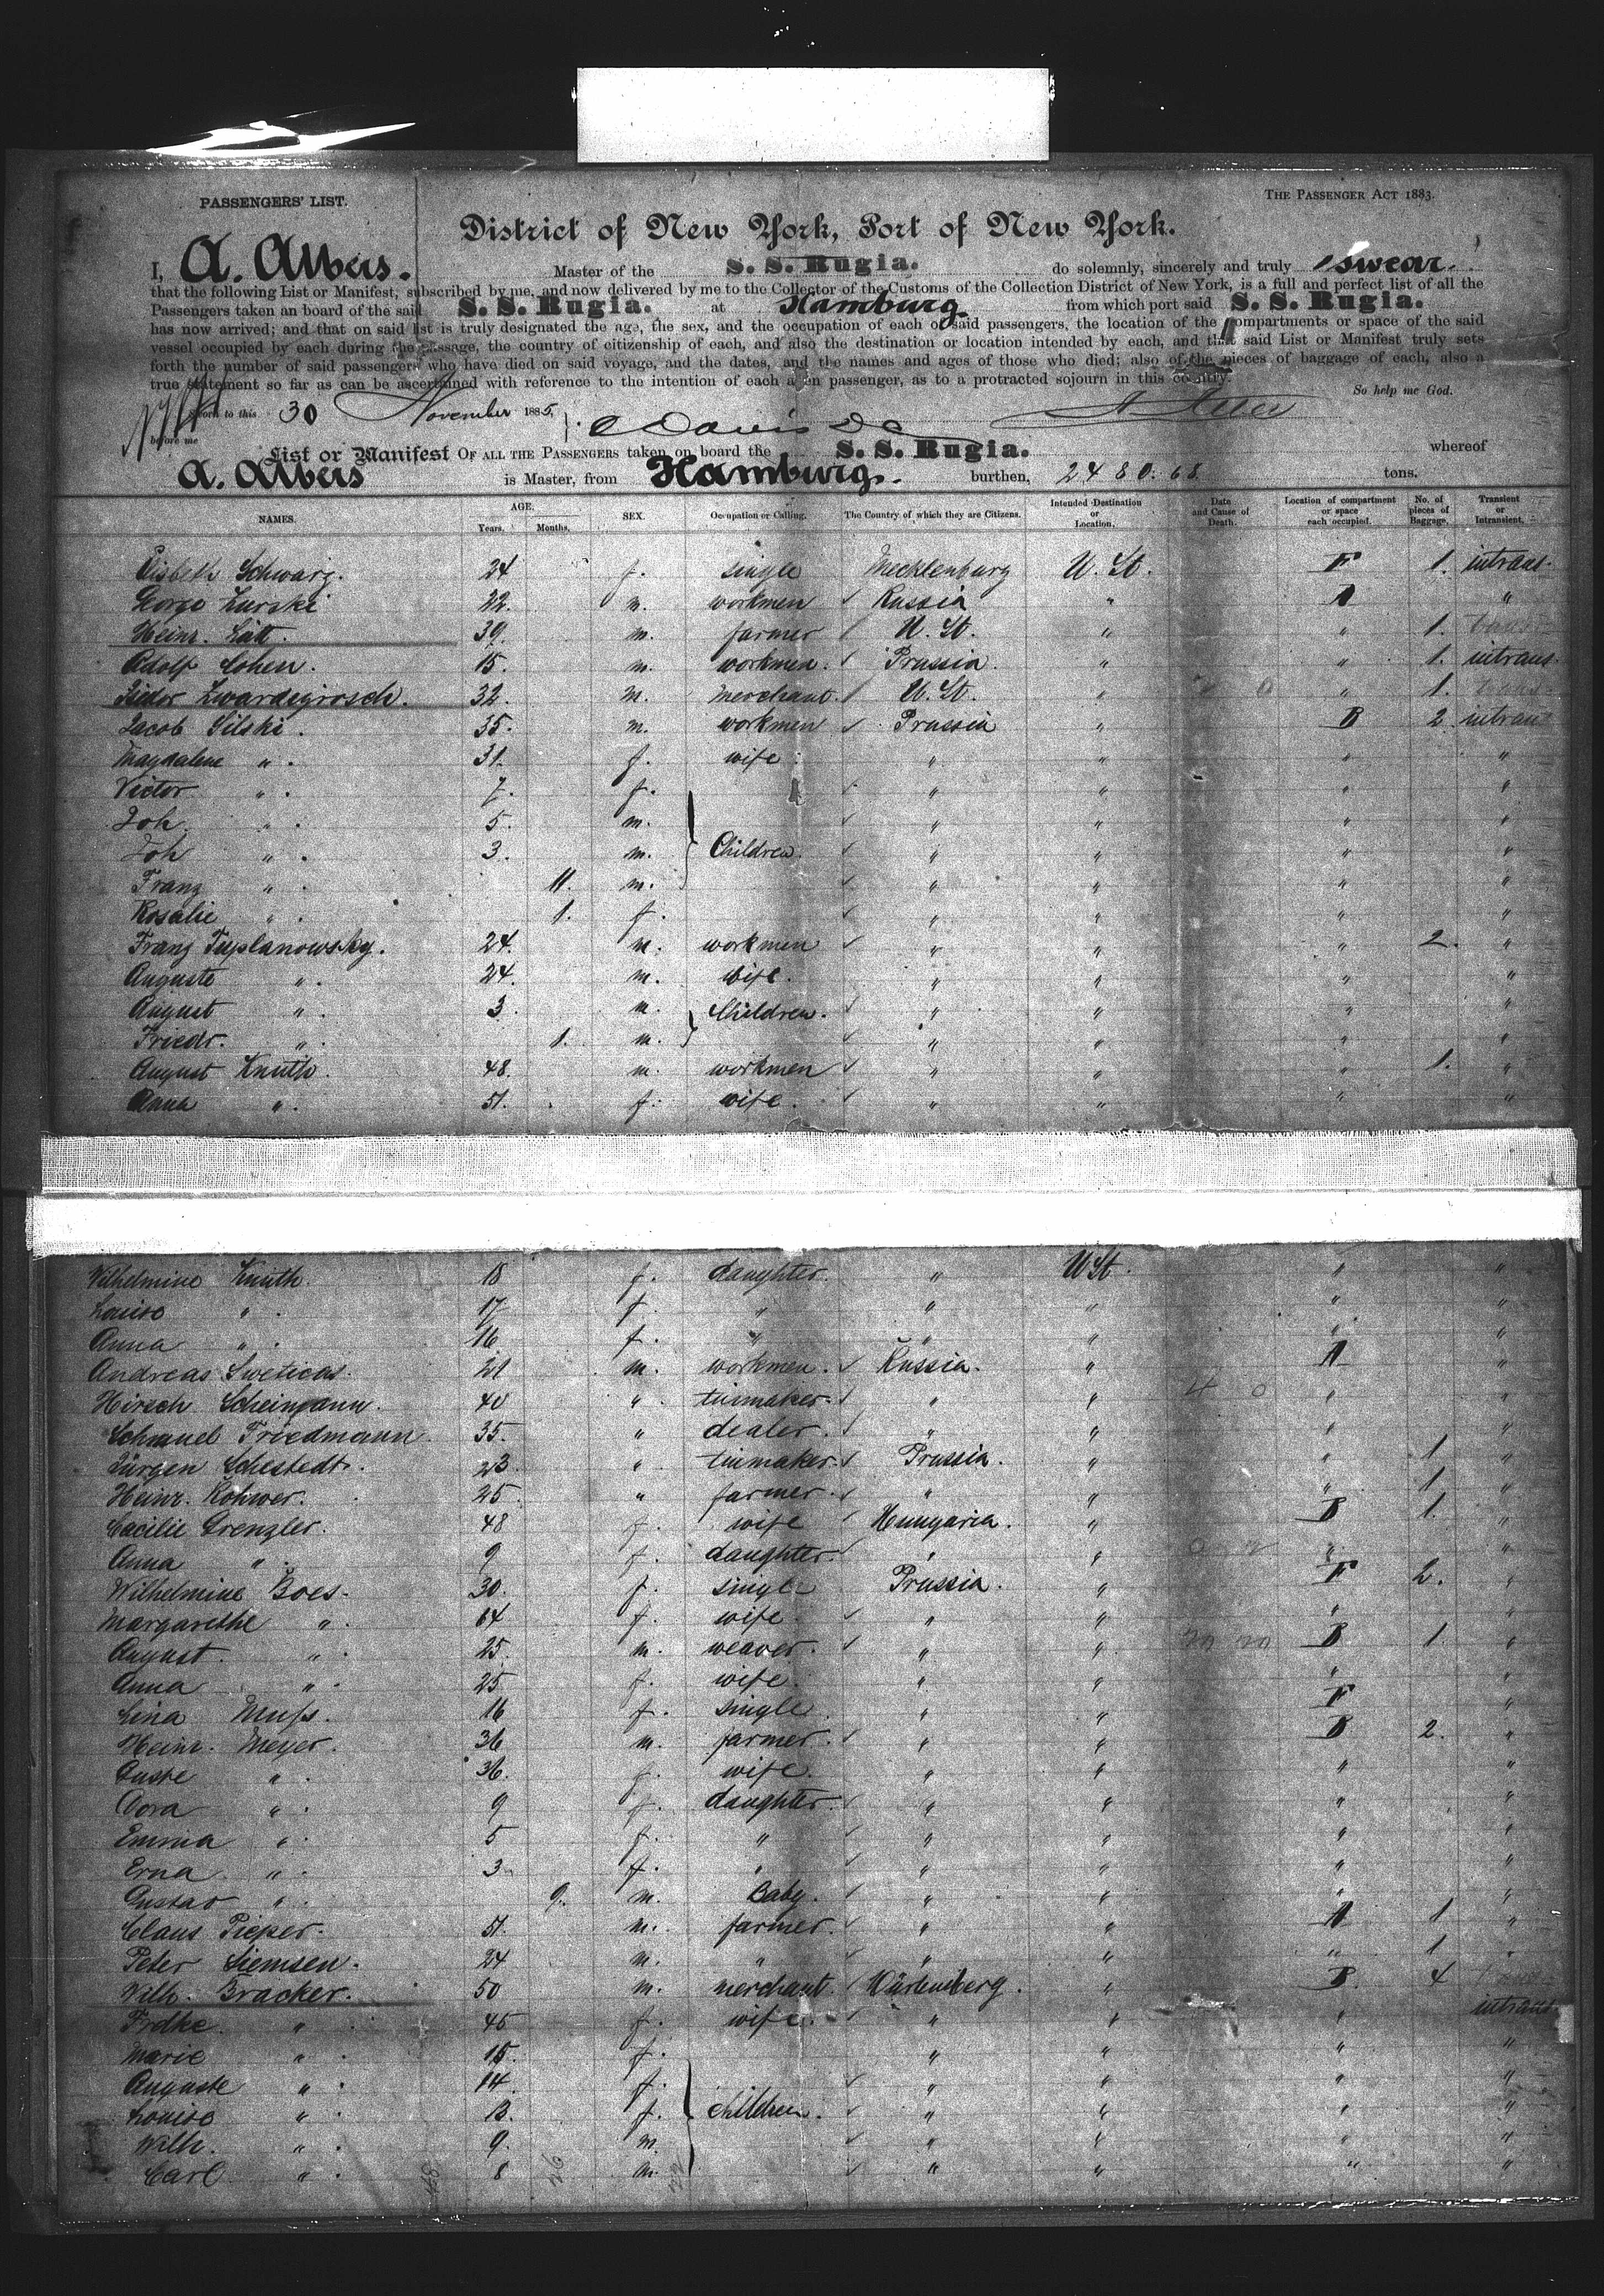 PASSENGERS' LIST.
THE PASSENGER ACT 1883.
District of New York, Port of New York.
I, A. Albers. Master of the S. S. Rugia. do solemnly, sincerely and truly swear.
that the following List or Manifest, subscribed by me, and now delivered by me to the Collector of the Customs of the Collection District of New York, is a full and perfect list of all the
Passengers taken an board of the said S. S. Rugia. at Hamburg from which port said S. S. Rugia.
has now arrived; and that on said list is truly designated the age, the sex, and the occupation of each of said passengers, the location of the compartments or space of the said
vessel occupied by each during the passage, the country of citizenship of each, and also the destination or location intended by each, and that said List or Manifest truly sets
forth the number of said passengers who have died on said voyage, and the dates, and the names and ages of those who died; also of the pieces of baggage of each, also a
true statement so far as can be ascertained with reference to the intention of each alien passenger, as to a protracted sojourn in this country.
So help me God.
Sworn to this 30 November 1885.
before me
List or Manifest OF ALL THE PASSENGERS taken on board the S. S. Rugia. whereof
A. Albers is Master, from Hamburg. burthen, 2480.68 tons.
NAMES. AGE. Years. Months. SEX. Occupation or Calling. The Country of which they are Citizens. Intended Destination or Location. Date and Cause of Death. Location of compartment or space each occupied. No. of pieces of Baggage. Transient or Intransient.
Lisbeth Schwarz. 24 f. single Mecklenburg U. St. F 1. intrans.
George Zurski 22. m. workmen Russia " A "
Heinr. Lütt. 39. m. farmer U. St. " " 1.
Adolf Cohen. 15. m. workmen. Prussia. " " 1. intrans.
Isidor Zwardsgrosch. 32. m. merchant. U. St. " " 1.
Jacob Silski. 35. m. workmen Prussia " B 2 intrans
Magdalene " 31. f. wife. " " " "
Victor " 7. f. " " " "
Joh. " 5. m. " " " "
Joh " 3. m. Children. " " " "
Franz " 11. m. " " " "
Rosalie " 1. f. " " " "
Franz Tuplanowsky. 24. m. workmen " " " 2. "
Auguste " 24. m. wife. " " " "
August " 3. m. Children. " " " "
Friedr. " 1. m. " " " "
August Knuth. 48. m. workmen " " " 1. "
Anna " 51. f. wife. " " " "
Wilhelmine Knuth. 18 f. daughter. " U St. " "
Louise " 17 f. " " " " "
Anna " 16 f. " " " " "
Andreas Sweticas. 21 m. workmen. Russia. " A "
Hirsch Scheinmann. 40 " tinmaker. " " " "
Schmuel Friedmann. 35. " dealer. " " " "
Jürgen Schestedt. 23 " tinmaker. Prussia. " " 1 "
Heinr. Rohwer. 25. " farmer. " " " 1. "
Cäcilie Grenzler. 48 f. wife Hungaria. " B 1. "
Anna " 9 f. daughter. " " " "
Wilhelmine Boes. 30. f. single Prussia. " F 2. "
Margarethe " 64 f. wife. " " " "
August " 25. m. weaver. " " B 1 "
Anna " 25 f. wife. " " " "
Lina Muss. 16 f. single. " " F "
Heinr. Meyer. 36 m. farmer. " " B 2. "
Guste " 36. f. wife. " " " "
Dora " 9 f. daughter. " " " "
Emma " 5 f. " " " " "
Erna " 3. f. " " " " "
Gustav " 9. m. Baby. " " " "
Claus Pieper. 51. m. farmer. " " A 1 "
Peter Siemsen. 24 m. " " " " 1 "
Wilh. Bracker. 50 m. merchant. Würtemberg. " B. 4
Frdke. " 45 f. wife. " " " intrans.
Marie " 15. f. " " " "
Auguste " 14. f. " " " "
Louise " 13. f. children. " " " "
Wilh. " 9. m. " " " "
Carl " 8 m. " " " "